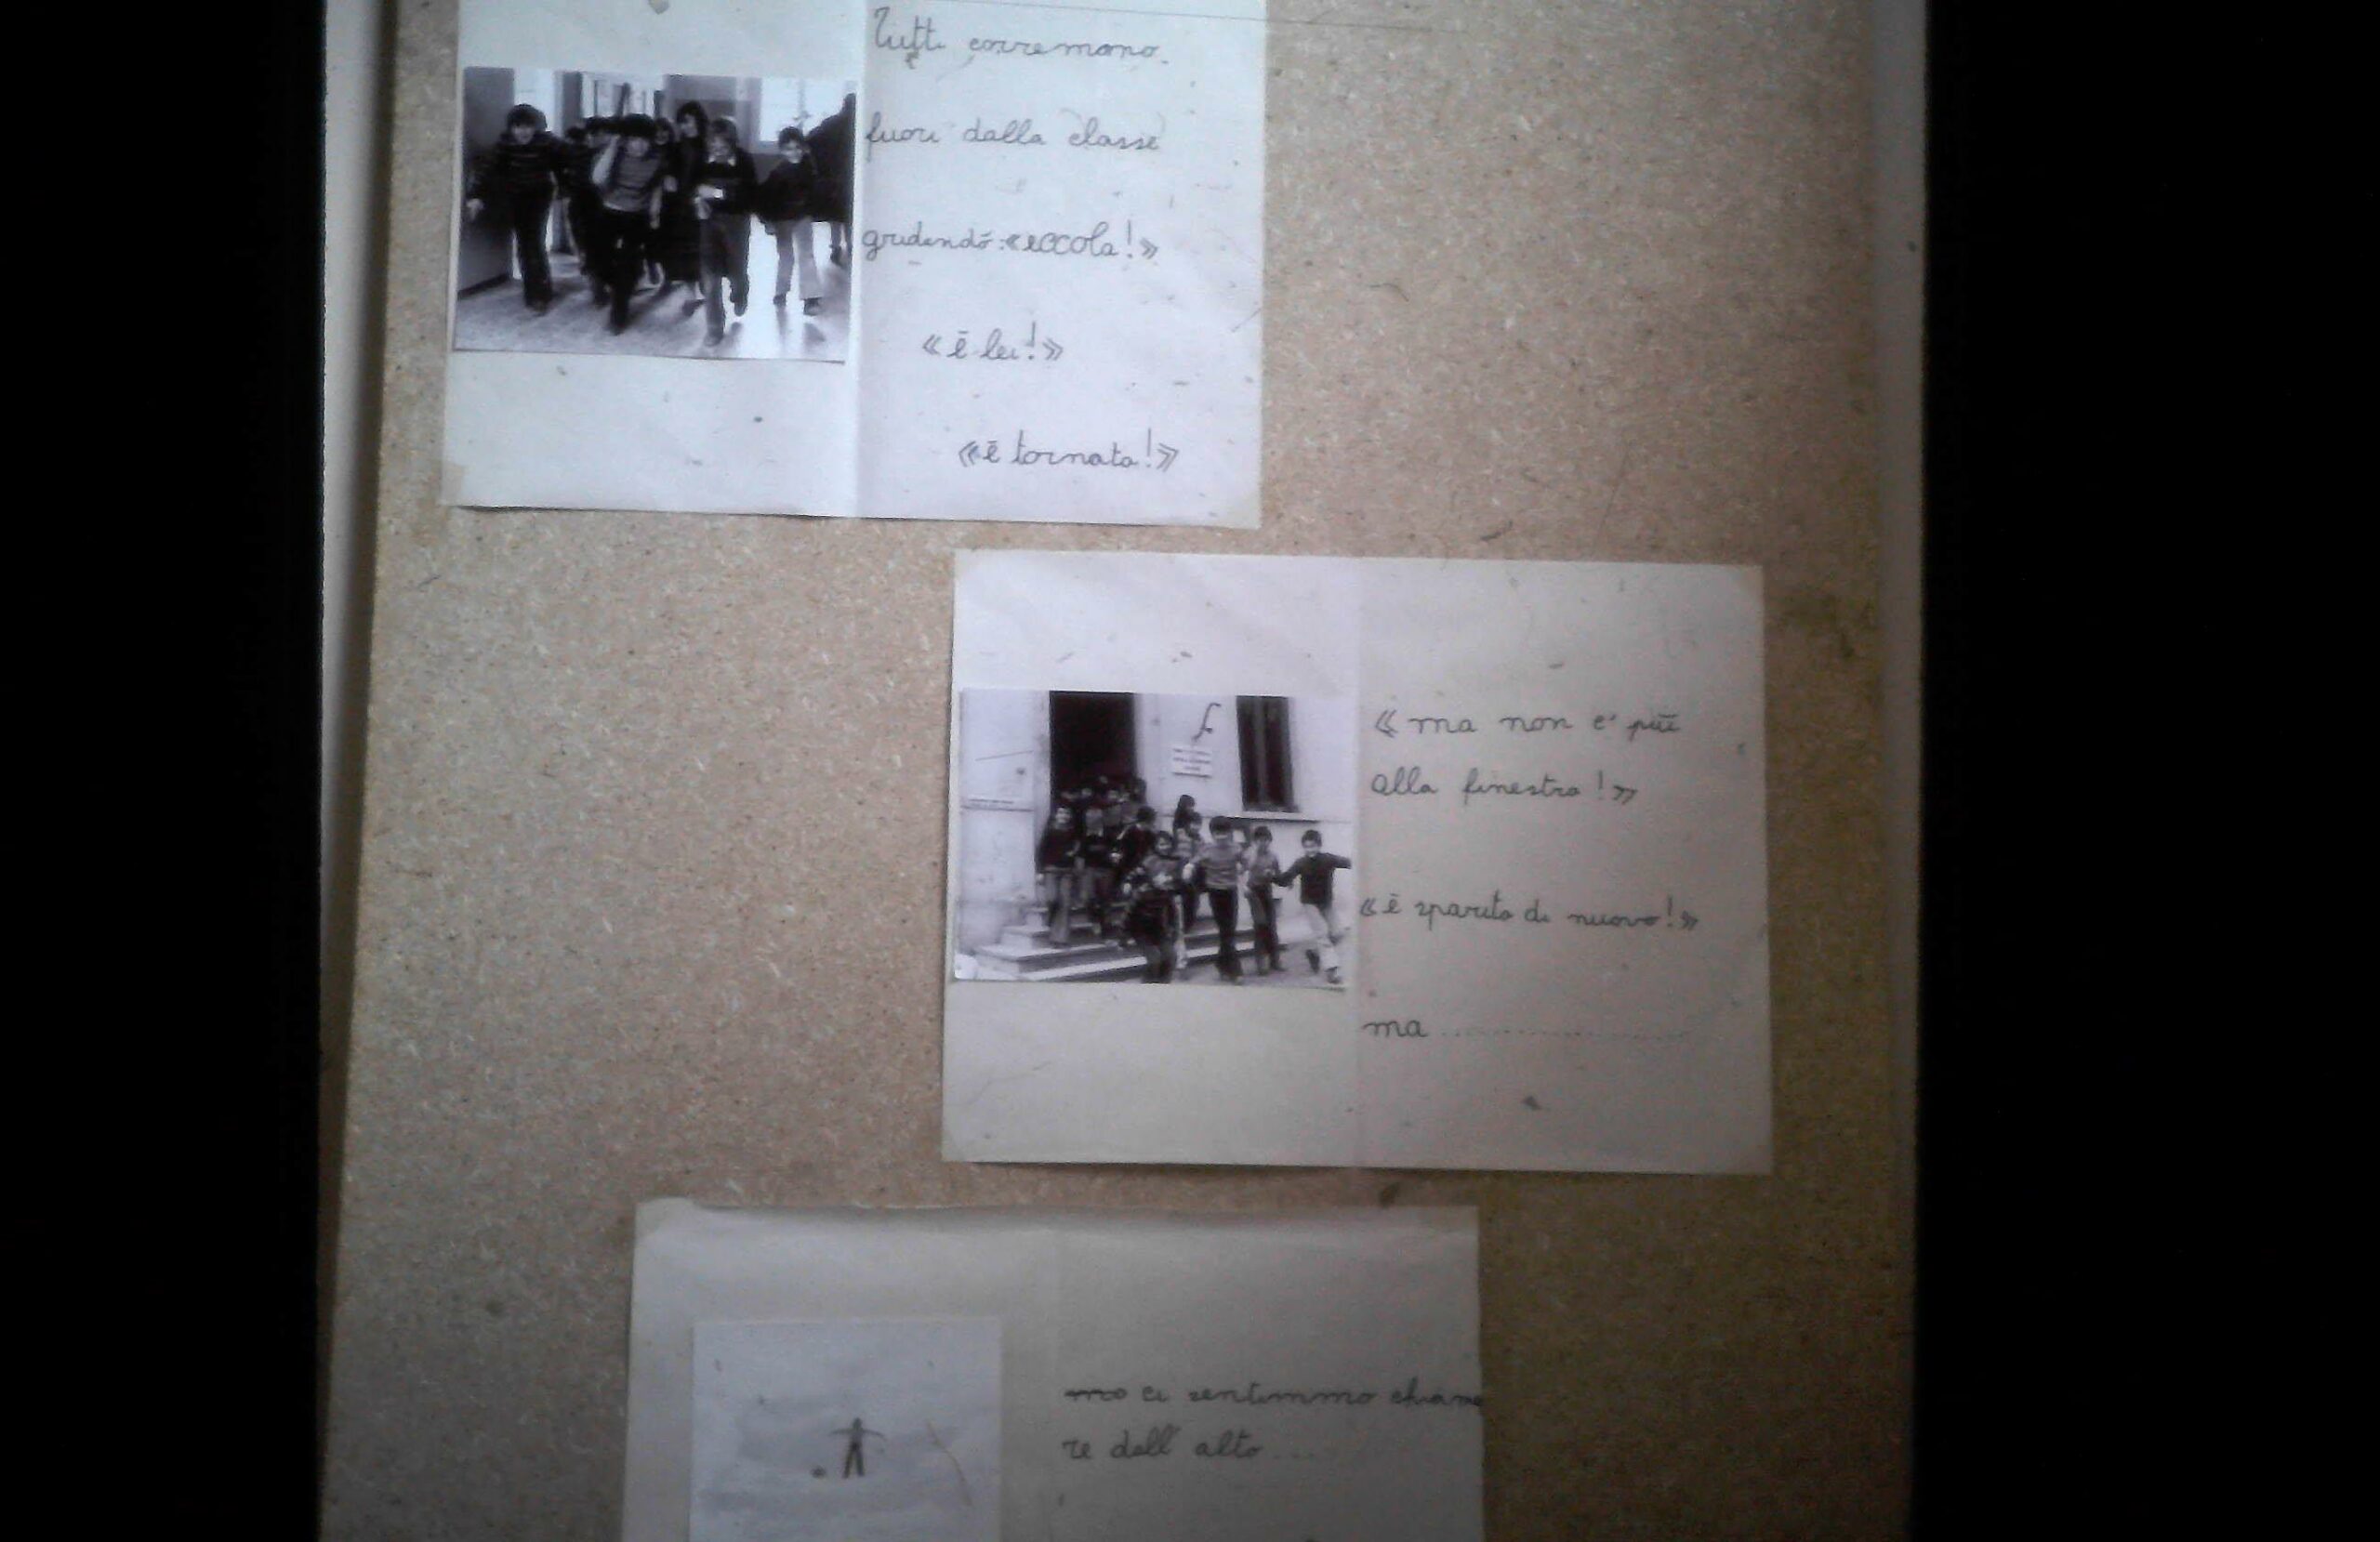 Tutti corremono
fuori dalla classe
gridando: «eccola!»
«è lei!»
«è tornata!»
«ma non e' più
alla finestra!»
«è sparita di nuovo!»
ma ....................
ma ci sentimmo chiama
re dall' alto ....